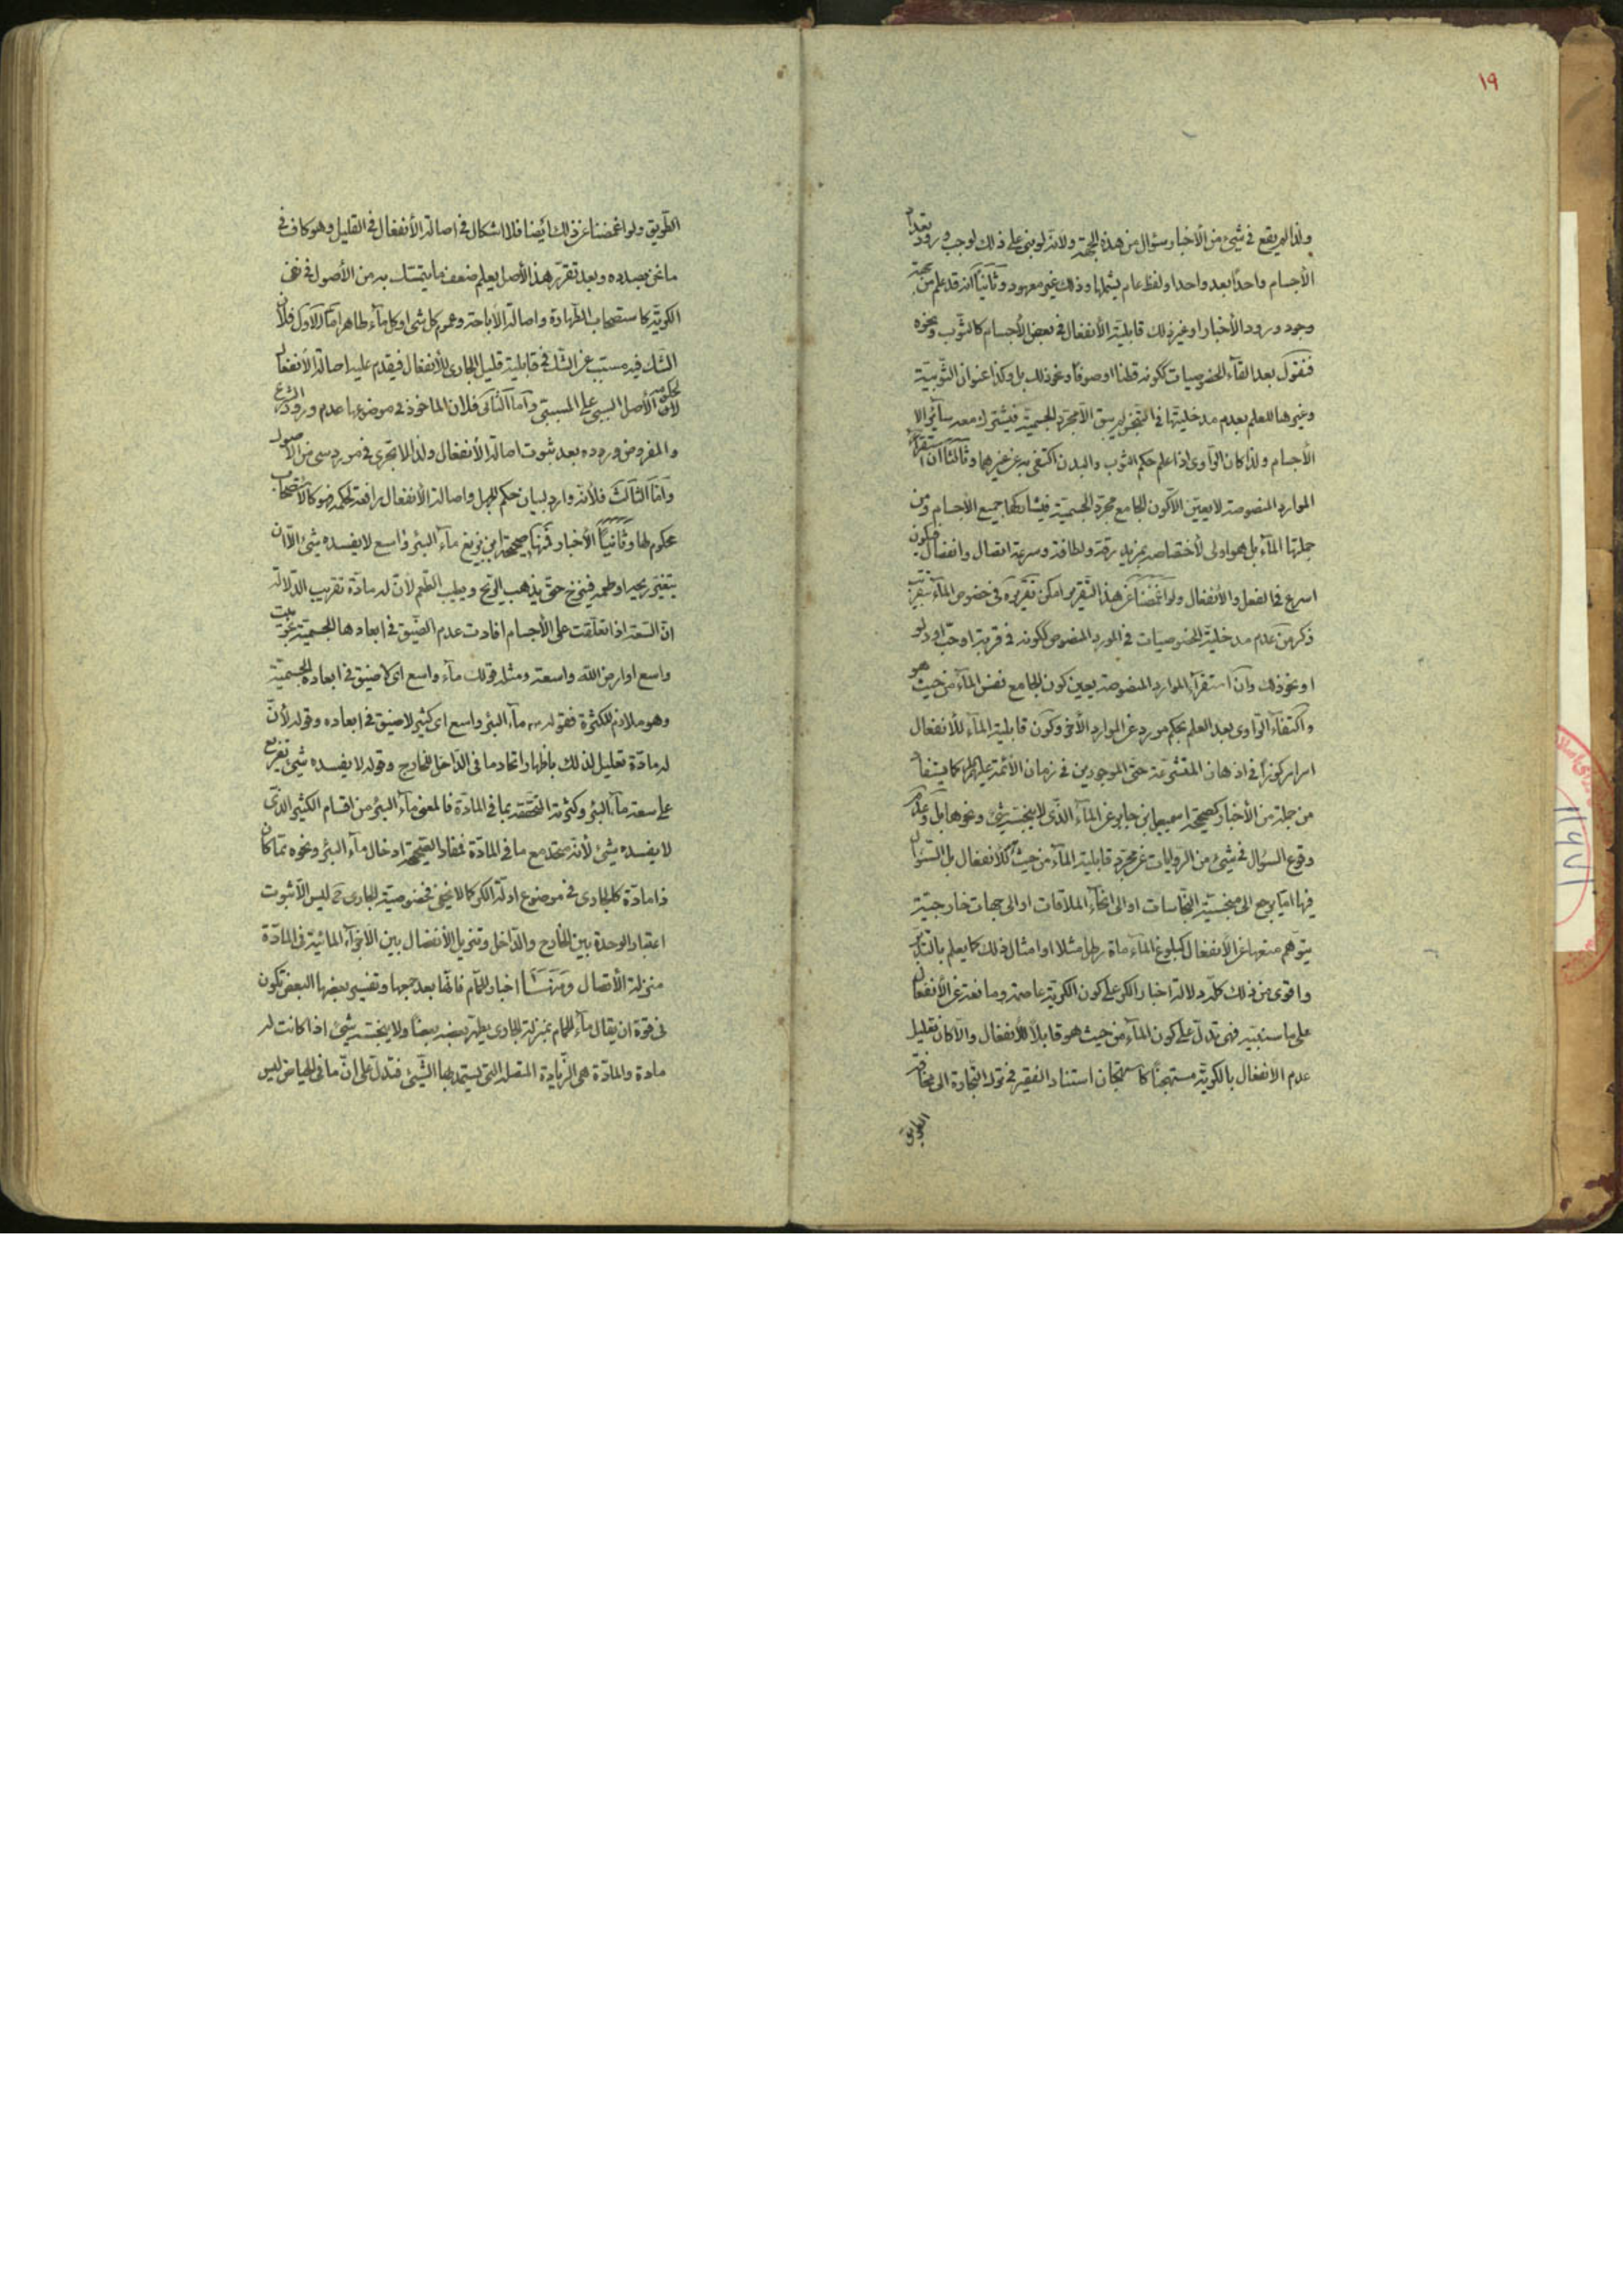 ١٩
ولذا لم يقع في شيء من الأخبار سؤال من هذه الجهة ولانه لو بنى على ذلك لوجب ورود تعداد
الأجسام واحدا بعد واحد او لفظ عام يشملها وذلك غير معهود وثانيا انه قد علم من جهة
وجود ورود الأخبار او غير ذلك قابلية الأنفعال في بعض الأجسام كالثوب ونحوه
فنقول بعد القآء الخصوصيات ككونه قطنا او صوفا ونحو ذلك بل وكذا عنوان الثوبية
وغيرها للعلم بعدم مدخليتها في التنجس لم يبق الا مجرد الجسمية فيشترك معه سائر
الأجسام ولذا كان الراوى اذا علم حكم الثوب والبدن اكتفى به عن غيرهما وثالثا ان استقراء
الموارد المنصوصة لا يعين الا كون الجامع مجرد الجسمية فيشاركها جميع الأجسام ومن
جملتها المآء بل هو اولى لأختصاصه بمزيد رقة ولطافة وسرعة اتصال وانفصال فيكون
اسرع في الفعل والأنفعال ولو اغمضنا عن هذا التقرير امكن تقريره في خصوص المآء بتقريب
ذكر من عدم مدخلية الخصوصيات في المورد المنصوص ككونه في قربة او حب او دلو
او نحو ذلك وان استقرآء الموارد المنصوصة يعين كون الجامع نفس المآء من حيث هو
واكتفآء الراوى بعد العلم بحكم مورد عن الموارد الأخر وكون قابلية المآء للأنفعال
امرا مركوزا في اذهان المتشرعة حتى الموجودين في زمان الأئمة عليهم كما يستفاد
من جملة من الأخبار كصحيحة اسمعيل بن جابر عن المآء الذى لا ينجسه شيء ونحوها بل وعدم
وقوع السؤال في شيء من الروايات عن مجرد قابلية المآء من حيث للأنفعال بل السؤال
فيها اما يرجع الى منجسية النجاسات او الى انحآء الملاقات او الى جهات خارجية
يتوهم منعها عن الأنفعال كبلوغ المآء ماة رطل مثلا او امثال ذلك كما يعلم بالتدبر
واقوى من ذلك كله دلالة اخبار الكر على كون الكرية عاصمة ومانعة عن الأنفعال
على ما سنبينه فهى تدل على كون المآء من حيث هو قابلا للأنفعال والا كان تعليل
عدم الانفعال بالكرية مستهجنا كاستهجان استناد الفقير في ترك التجارة الى مخافة
الطريق
الطريق ولو اغمضنا عن ذلك ايضا فلا اشكال في اصالة الأنفعال في القليل وهو كاف في
ما نحن بصدده وبعد تقرر هذا الأصل يعلم ضعف ما يتمسك به من الأصول في نفى
الكرية كاستصحاب الطهارة واصالة الأباحة وعموم كل شى او كل مآء طاهر اما الاول فلأن
الشك فيه مسبب عن الشك في قابلية قليل الجارى للأنفعال فيقدم عليه اصالة الأنفعال
لحكومة الأصل السببى على المسببى واما الثانى فلان الماخوذ في موضوعها عدم ورود الشرع
والمفروض وروده بعد ثبوت اصالة الأنفعال ولذا لا تجرى في مورد شى من الأصول
واما الثالث فلأنه وارد لبيان حكم الجهل واصالة الأنفعال رافعة لحكمه فهو كالأستصحاب
محكوم لها وثانيا الأخبار فمنها صحيحة ابن بزيع مآء البئر واسع لا يفسده شيء الا ان
يتغير ريحه او طعمه فينزح حتى يذهب الريح ويطيب الطعم لأن له مادة تقريب الدلالة
ان السعة اذا تعلقت على الأجسام افادت عدم الضيق في ابعادها الجسمية نحو بيت
واسع او ارض الله واسعة ومثله قولك مآء واسع اى لا ضيق في ابعاده الجسمية
وهو ملازم للكثرة فقوله مآء البئر واسع اى كثير لا ضيق في ابعاده وقوله لأن
له مادة تعليل لذلك باظهار اتحاد ما في الداخل للخارج وقوله لا يفسده شيء تفريع
على سعة مآء البئر وكثرته المتحققة بما في المادة فالمعنى مآء البئر من اقسام الكثير الذى
لا يفسده شيء لأنه متحد مع ما في المادة فمفاد الصحيحة ادخال مآء البئر ونحوه مما كان
ذا مادة كالجارى في موضوع ادلة الكر كما لا يخفى فخصوصية الجارى ح ليس الا ثبوت
اعتبار الوحدة بين الخارج والداخل وتنزيل الأنفصال بين الاجزآء المائية في المادة
منزلة الأتصال ومنها اخبار الحمام فانها بعد جمعها وتفسير بعضها البعض تكون
في قوة ان يقال مآء الحمام بمنزلة الجارى يطهر بعضه بعضا ولا ينجسه شيء اذا كانت له
مادة والمادة هى الزيادة المتصلة التى يستمد بها الشيء فتدل على ان ما في الحياض ليس